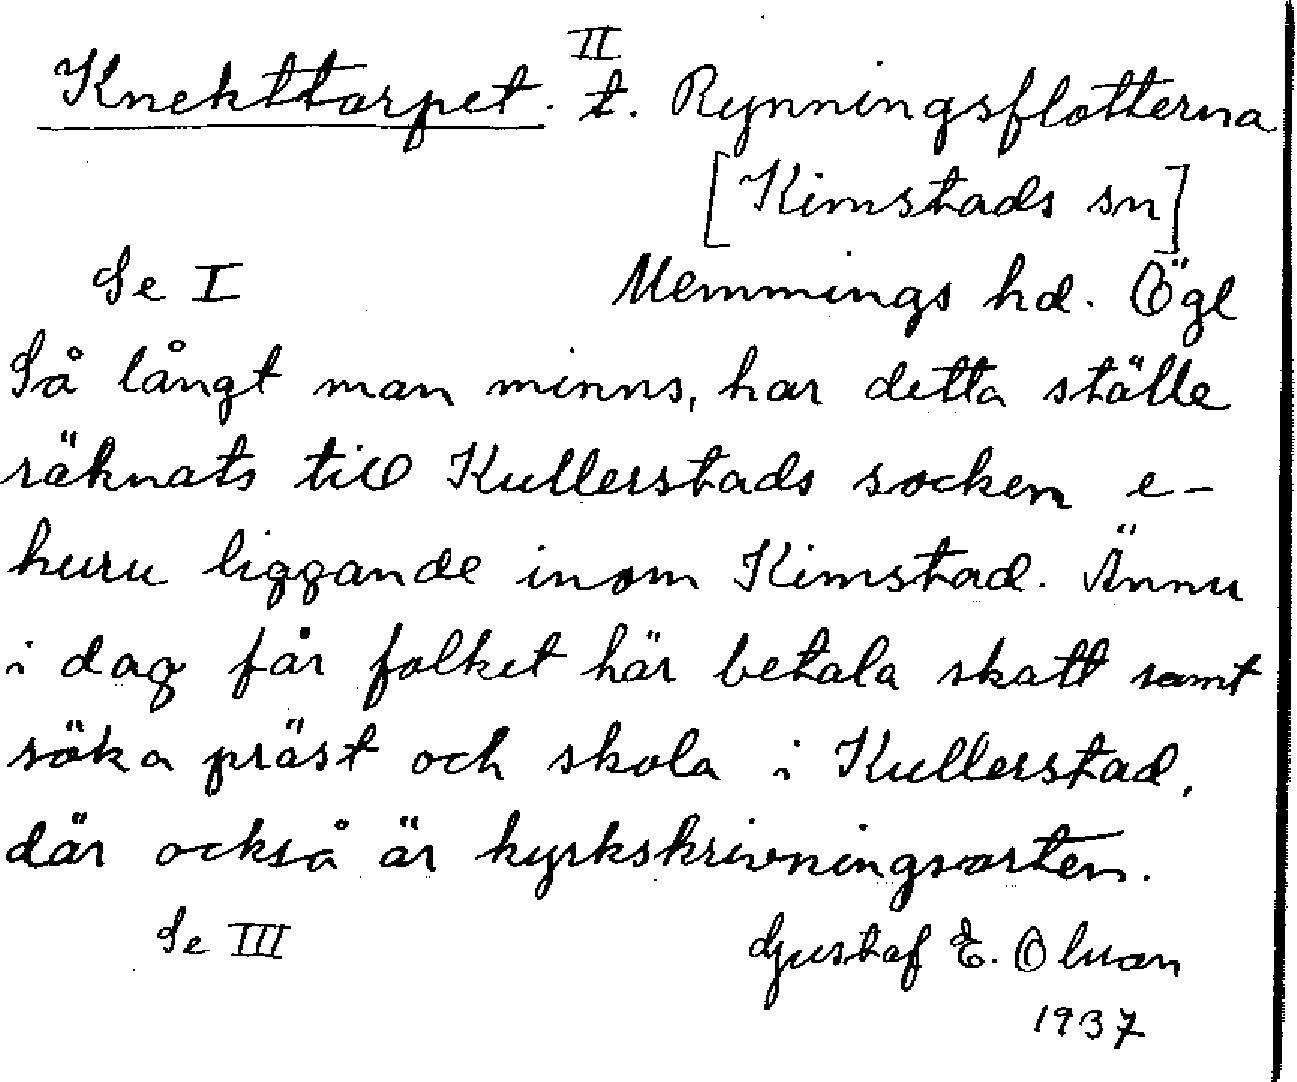 II
Knekttorpet. t. Rynningsflotterna
[Kimstads sn]
Se I Memmings hd. Ögl
Så långt man minns, har detta ställe
räknats till Kullerstads socken e-
huru liggande inom Kimstad. Ännu
i dag får folket här betala skatt samt
söka präst och skola i Kullerstad,
där också är kyrkskrivningsorten.
Se III Gustaf E. Olson
1937